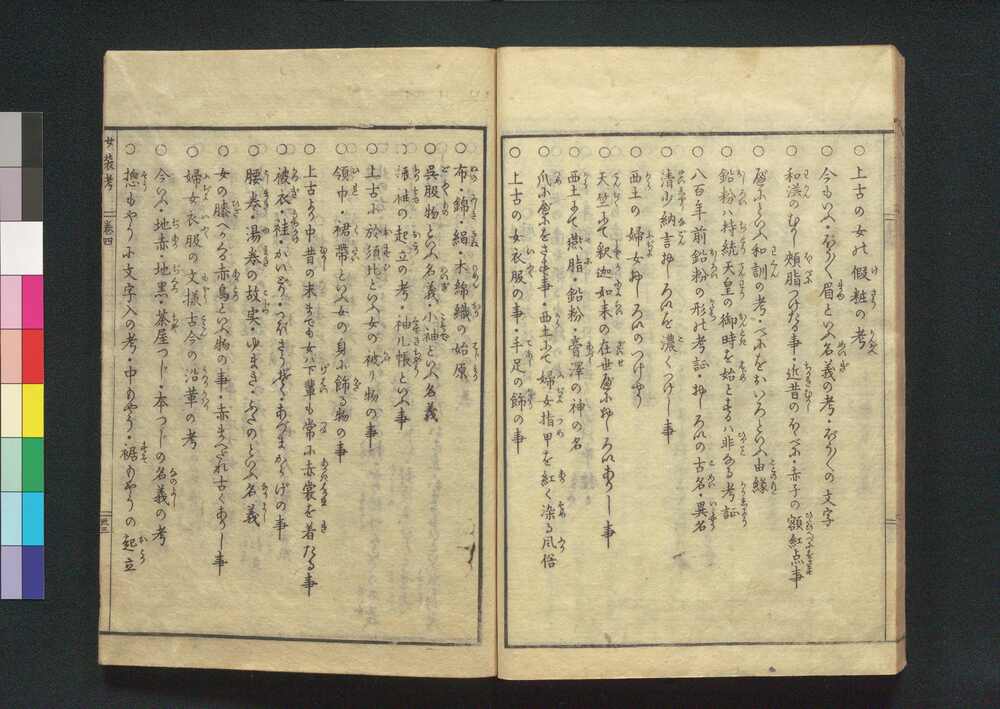 ○上古の女の假粧の考
○今もいふ・ぼう〳〵眉といふ名義の考・ぼう〳〵の文字
○和漢のむかし頬脂つけたる事・近昔のほゝべに・赤子の額紅点事
○べにといふ和訓の考・べにをおいろといふ由縁
○鉛粉ハ持統天皇の御時を始とするハ非なる考証
○八百年前鉛粉の形の考証・おしろいの古名・異名
○清少納言おしろいを濃くつけし事
○西土の婦女おしろいのつけやう
○天竺にて釈迦如来の在世べにおしろいありし事
○西土にて燕脂・鉛粉・膏澤の神の名
○爪にべにをさす事・西土にて婦女指甲を紅く染る風俗
○上古の女衣服の事・手足の飾の事
○布・錦・絹・木綿織の始原
○呉服物といふ名義・小袖といふ名義
○振袖の起立の考・袖几帳といふ事
○上古に於須比といふ女の被り物の事
○領巾・裙帯といふ女の身に飾る物の事
○上古より中昔の末までも女ハ下輩も常に赤裳を着たる事
○被衣・袿・かいどり・つぼさうぞく・あづまからげの事
○腰巻・湯巻の故実・ゆまき・ふたのといふ名義
○女の膝へかゝる赤鳥といふ物の事・赤まへだれ古くありし事
○婦女衣服の文様古今の沿革の考
○今いふ・地赤・地黒・茶屋つじ・本つじの名義の考
○惣もやうに文字入の考・中もやう・裾もやうの起立
女装考
巻四